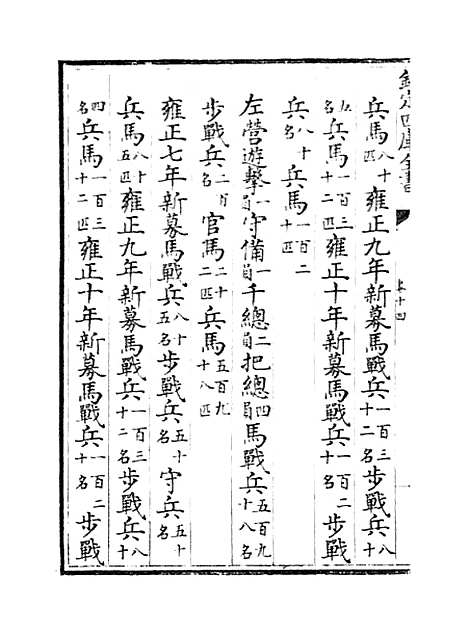 欽定四庫全書
卷十四
兵馬八十匹雍正九年新募馬戰兵一百三十二名步戰兵八十
五名兵馬一百三十二匹雍正十年新募馬戰兵一百二十名步戰
兵八十名兵馬一百二十匹
左營遊擊一員守備一員千總二員把總四員馬戰兵五百九十八名
步戰兵二百名官馬二十二匹兵馬五百九十八匹
雍正七年新募馬戰兵八十五名步戰兵五十名守兵五十名
兵馬八十五匹雍正九年新募馬戰兵一百三十二名步戰兵八十
四名兵馬一百三十二匹雍正十年新募馬戰兵一百二十名步戰